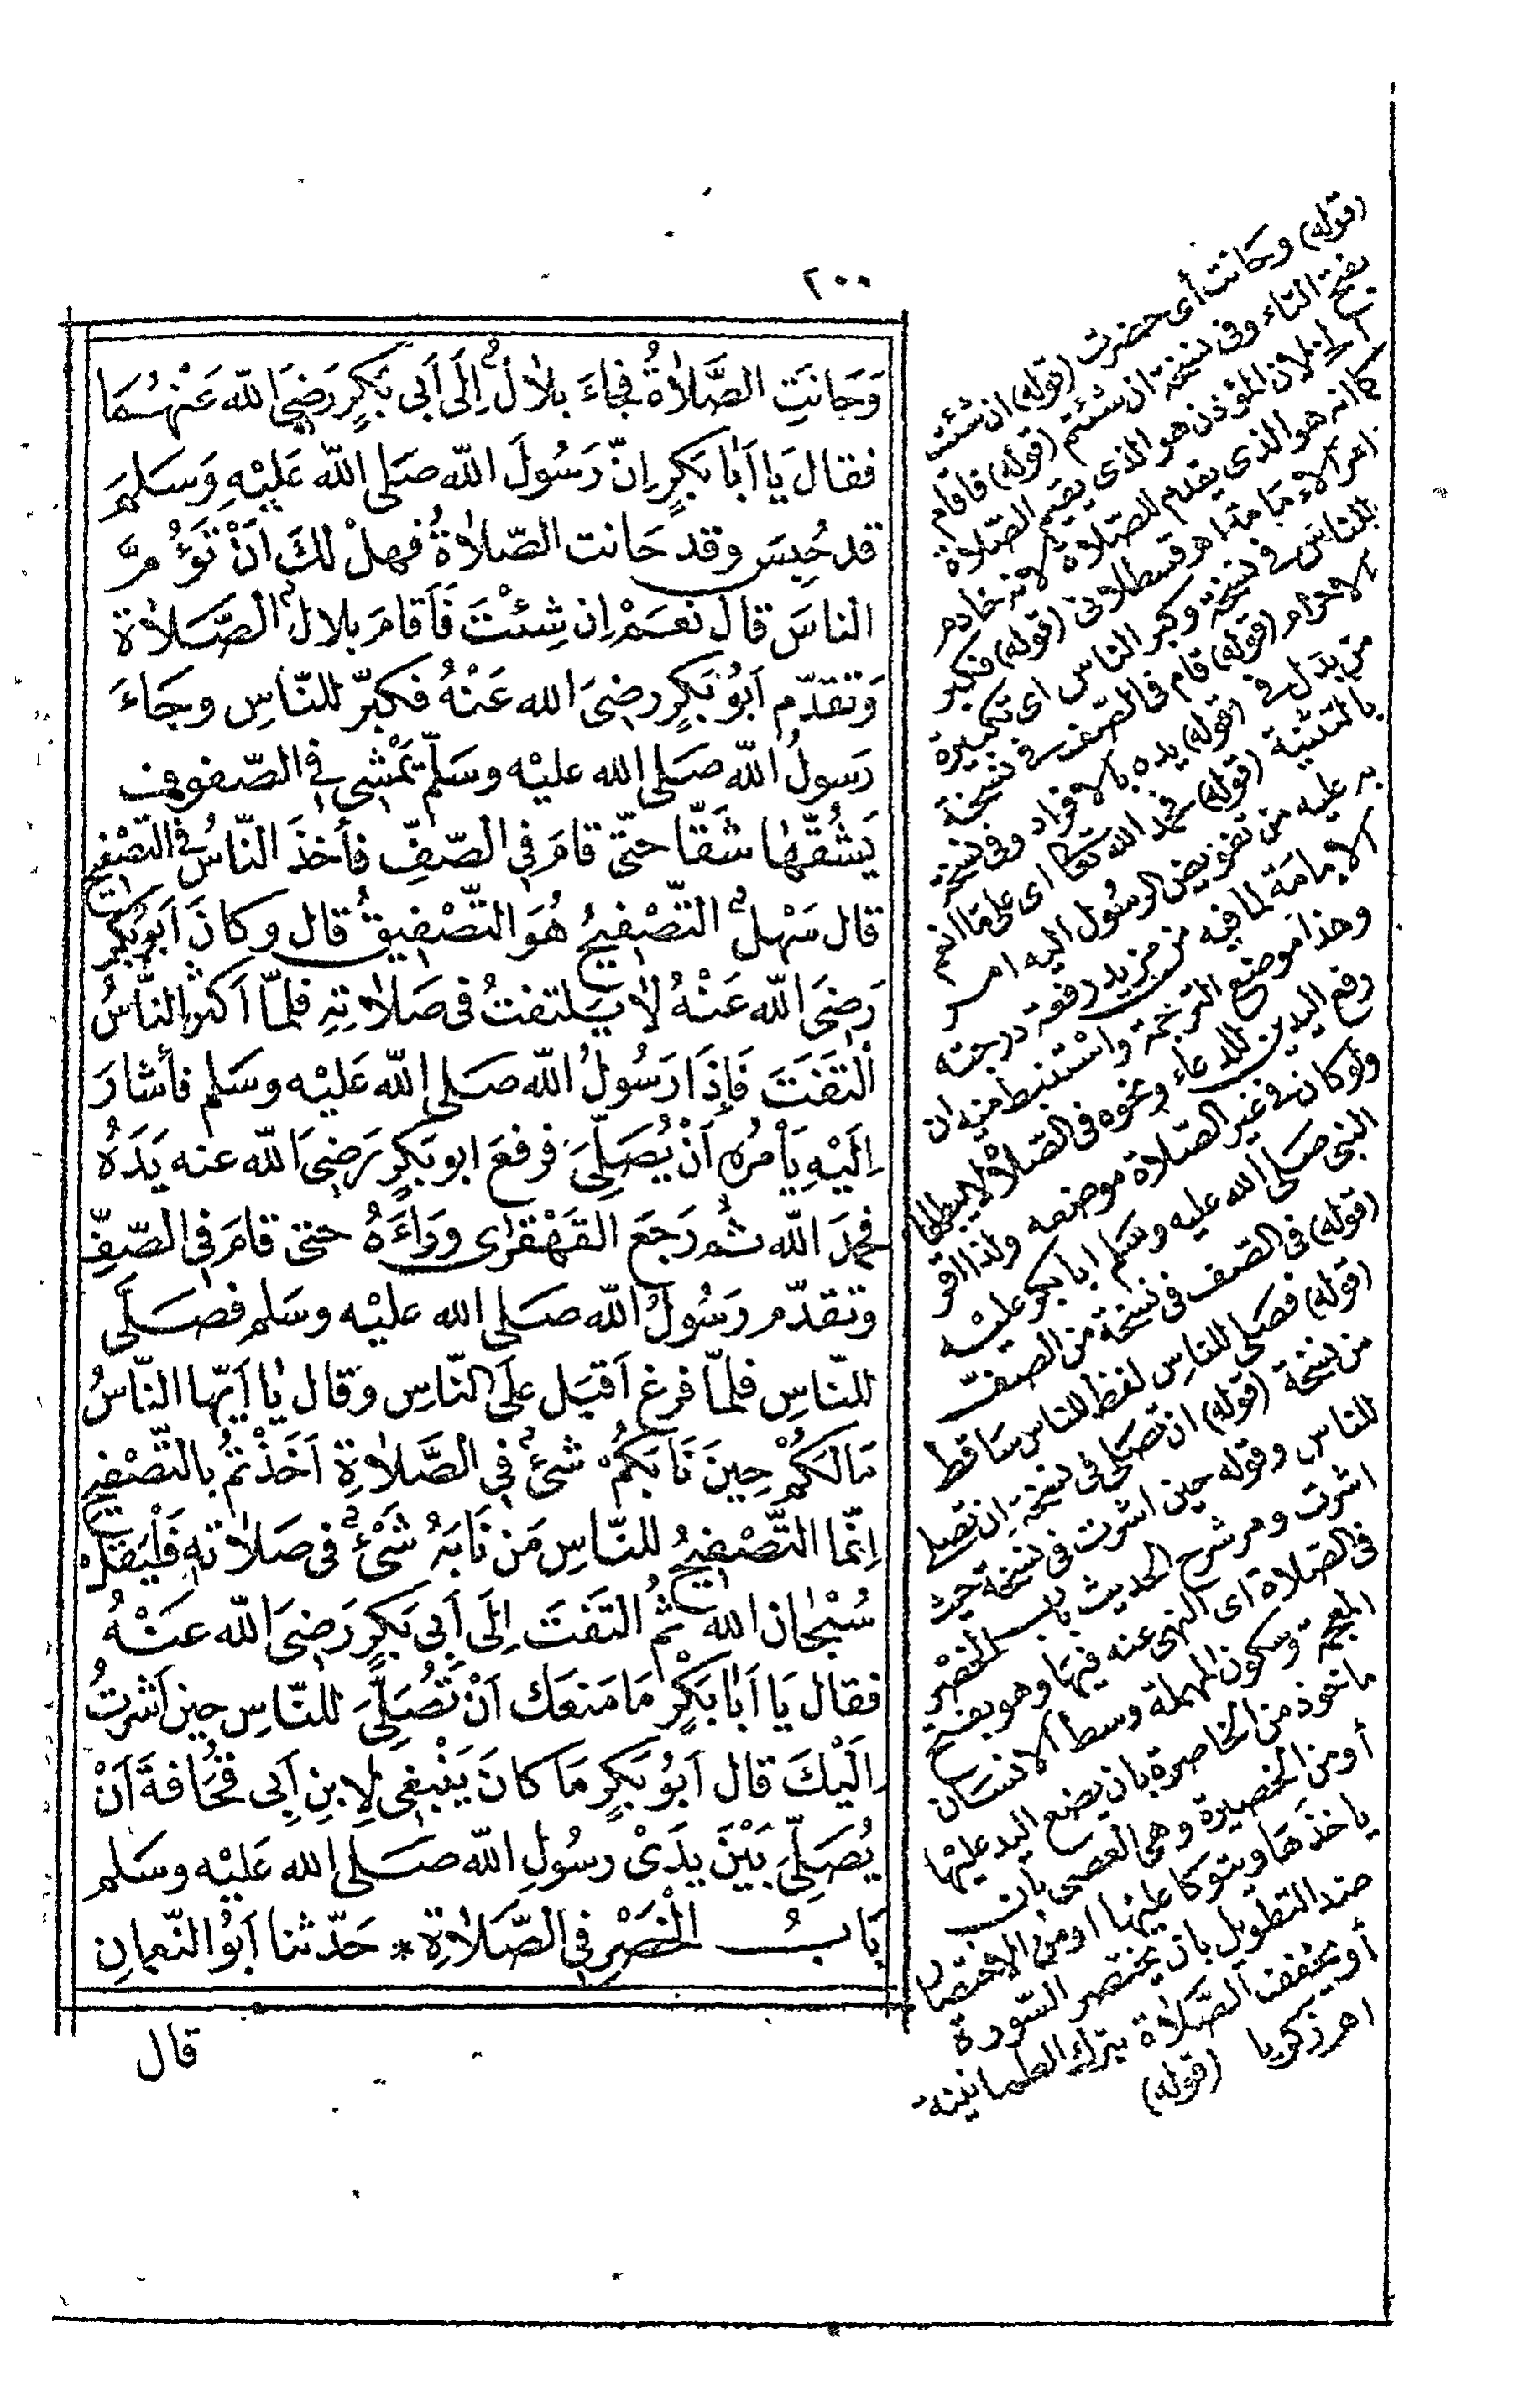 ٢٠٠
وَحَانَتِ الصَّلَاةُ فَجَاءَ بِلَالٌ اِلَى اَبِى بَكرٍ رَضِىَ الله عَنْهُمَا
فقال يَا اَبَا بَكرٍ اِنّ رَسُولَ الله صَلى الله عَلَيْهِ وَسَلمَ
قد حُبِسَ وقد حَانت الصّلاةُ فهلْ لكَ اَنْ تَؤُمَّ
الناسَ قال نعَمْ اِن شِئْتَ فَاَقامَ بلالٌ الصَّلاة
وَتقدّم اَبُو بَكرٍ رضىَ الله عَنْهُ فكبّر للنّاسِ وجَاءَ
رَسولُ الله صَلى الله عليْه وسَلّم يَمْشى فى الصّفوف
يَشُقّهَا شَقّا حتّى قامَ فِى الصّفِّ فأخذَ النّاسُ فى التّصْفيح
قال سَهْلٌ التّصْفيحُ هُوَ التّصْفيقُ قال وكانَ اَبُو بَكرٍ
رَضىَ الله عَنْهُ لا يَلتفتُ فى صَلاتهِ فلمّا اَكثر النّاسُ
اَلْتفَتَ فَاِذَا رَسُولُ الله صَلى الله عَليْه وسَلم فأشارَ
اِلَيْهِ يَأمُرُه اَنْ يُصَلِّىَ فرفعَ ابو بَكرٍ رَضىَ الله عنه يَدَهُ
فحمدَ الله ثمّ رَجَعَ القَهْقرَى وَرَاءَهُ حتى قامَ فِى الصّفِّ
وتقدّم رَسُولُ الله صَلى الله عليْه وسَلم فصَلَّى
للنّاسِ فلمّا فرغ اَقبَل علَى النّاسِ وَقال يَا اَيّها النّاسُ
مَالَكُمْ حِينَ نَابَكُمْ شئٌ فِى الصَّلاةِ اَخَذْتُمْ بالتّصْفيحِ
اِنّما التَّصْفيحُ للنّاسِ مَن نَابَهُ شَئٌ فى صَلاتهِ فَلْيَقلْ
سُبْحان الله ثُمّ التَفَتَ اِلَى اَبِى بَكرٍ رَضىَ الله عَنْهُ
فقال يَا اَبَا بَكْرٍ مَا مَنعَك اَنْ تُصَلِّىَ للنّاسِ حِين اَشَرتُ
اِلَيْكَ قال اَبُو بَكرٍ مَا كانَ يَنْبغى لِابنِ اَبِى قُحَافةَ اَنْ
يُصَلِّىَ بَيْنَ يدَىْ رسُولِ الله صَلى الله عَليْه وسَلم
بَابُ الْخَصْرِ فِى الصَّلَاةِ * حَدّثنا اَبُو النّعمانِ
قال
(قوله) وحانت أى حضرت (قوله) ان شئت
بفتح التاء وفى نسخة ان شئتم (قوله) فاقام
الخ لان المؤذن هو الذى يقيم الصّلاة
كما انه هو الذى يقدم للصّلاة لانه خادم
امر الامامة اهـ قسطلانى (قوله) فكبر
للناس فى نسخة وكبر الناس اى تكبيرة
الاحرام (قوله) قام فى الصّف فى نسخة
من بدل فى (قوله) يده بالافراد وفى نسخة
بالتثنية (قوله) فحمد الله تعالى اى على ما انعم
به عليه من تفويض الرسول اليه امر
الامامَة لما فيه من مزيد رفعة درجته
وهذا موضع الترجمة واستنبط منه ان
رفع اليدين للدعاء ونحوه فى الصّلاة لا يبطلها
ولو كان فى غير الصّلاة موضعه ولذا اقر
النبى صَلى الله عليه وسَلم ابا بكر عليه
(قوله) فى الصّف فى نسخة من الصف
(قوله) فصَلى للناس لفظ للناس سَاقط
من نسخة (قوله) ان تصَلى فى نسخة ان تصلى
للناس وقوله حين اشرت فى نسخة حيث
اشرت ومر شرح الحديث باب الخصْر
فى الصّلاة اى النهى عنه فيها وهو بفتح
المعجمة وسكون المهملة وسط الانسَان
ماخوذ من الخاصرة بان يضع اليد عليْها
أو من المخصرة وهى العصى بان
ياخذهَا ويتوكا عليْها او من الاختصار
ضد التطويل بان يختصر السّورة
أو يخفف الصّلاة بترك الطمانينة
اهـ زكريا (قوله)